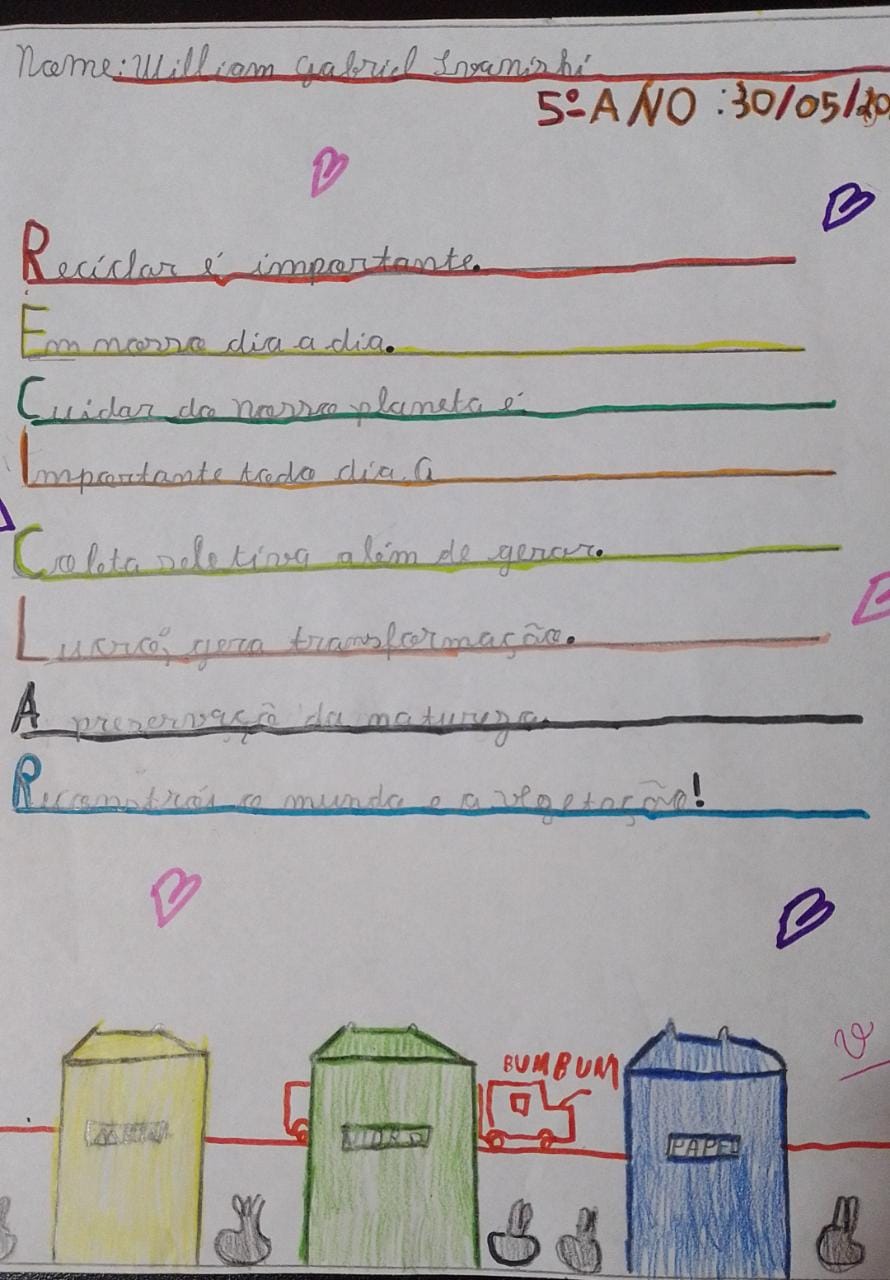 Nome: William Gabriel Ivaniski
5º ANO : 30/05/20
Reciclar é importante.
Em nosso dia a dia.
Cuidar do nosso planeta é
Importante todo dia. A
Coleta seletiva além de gerar.
Lucro, gera transformação.
A preservaçõ da natureza.
Reconstrói o mundo e a vegetação!
BUMBUM
VIDRO
PAPEL